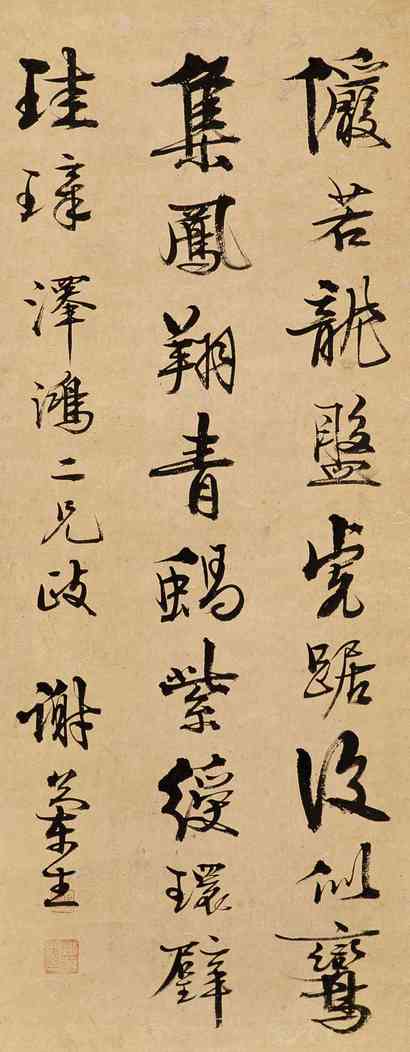 儼若龍盤虎踞復似鸞
集鳳翔青緺紫綬環璧
珪璋 澤鴻二兄政 謝蘭生